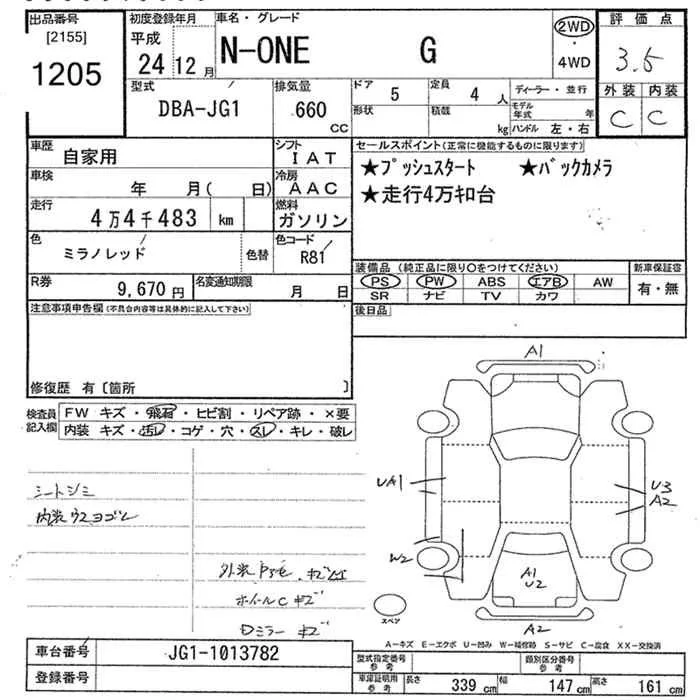 出品番号
[2155]
1205
初度登録年月
平成
24 12月
車名・グレード
N-ONE G
2WD
・
4WD
評価点
3.5
外装 内装
C C
型式
DBA-JG1
排気量
660
CC
ドア
5
定員
4 人
ディーラー・並行
形状
積載
kg
モデル年式 年
ハンドル 左・右
車歴
自家用
シフト
IAT
車検
年 月( 日)
冷房
AAC
走行
4万4千483 km
燃料
ガソリン
色
ミラノレッド
色替
色コード
R81
R券
9,670円
名変通知期限
月 日
セールスポイント(正常に機能するものに限ります)
★プッシュスタート ★バックカメラ
★走行4万キロ台
装備品 (純正品に限り○をつけてください)
PS PW ABS エアB AW
SR ナビ TV カワ
新車保証書
有・無
後日品
注意事項申告欄(不具合内容等は具体的に記入して下さい)
修復歴 有〔箇所 〕
検査員
記入欄
FW キズ・飛石・ヒビ割・リペア跡・×要
内装 キズ・汚レ・コゲ・穴・スレ・キレ・破レ
シートシミ
内装ウスヨゴレ
ホイールC キズ
Dミラー キズ
A1
UA1
U3
A2
W2
A1
U2
スペア
A2
A-キズ E-エクボ U-凹み W-補修跡 S-サビ C-腐食 XX-交換済
車台番号
JG1-1013782
登録番号
型式指定番号
参考
類別区分番号
参考
車庫証明用
参考
長さ 339 cm 幅 147 cm 高さ 161 cm